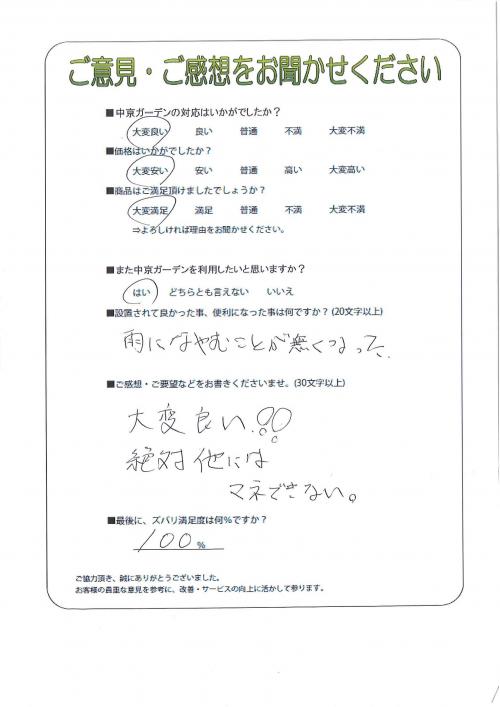 ご意見・ご感想をお聞かせください
■中京ガーデンの対応はいかがでしたか？
大変良い 良い 普通 不満 大変不満
■価格はいかがでしたか？
大変安い 安い 普通 高い 大変高い
■商品はご満足頂けましたでしょうか？
大変満足 満足 普通 不満 大変不満
⇒よろしければ理由をお聞かせください。
■また中京ガーデンを利用したいと思いますか？
はい どちらとも言えない いいえ
■設置されて良かった事、便利になった事は何ですか？(20文字以上)
雨になやむことが無くなった、
■ご感想・ご要望などをお書きくださいませ。(30文字以上)
大変良い!!
絶対他には
マネできない。
■最後に、ズバリ満足度は何％ですか？
100 %
ご協力頂き、誠にありがとうございました。
お客様の貴重な意見を参考に、改善・サービスの向上に活かして参ります。